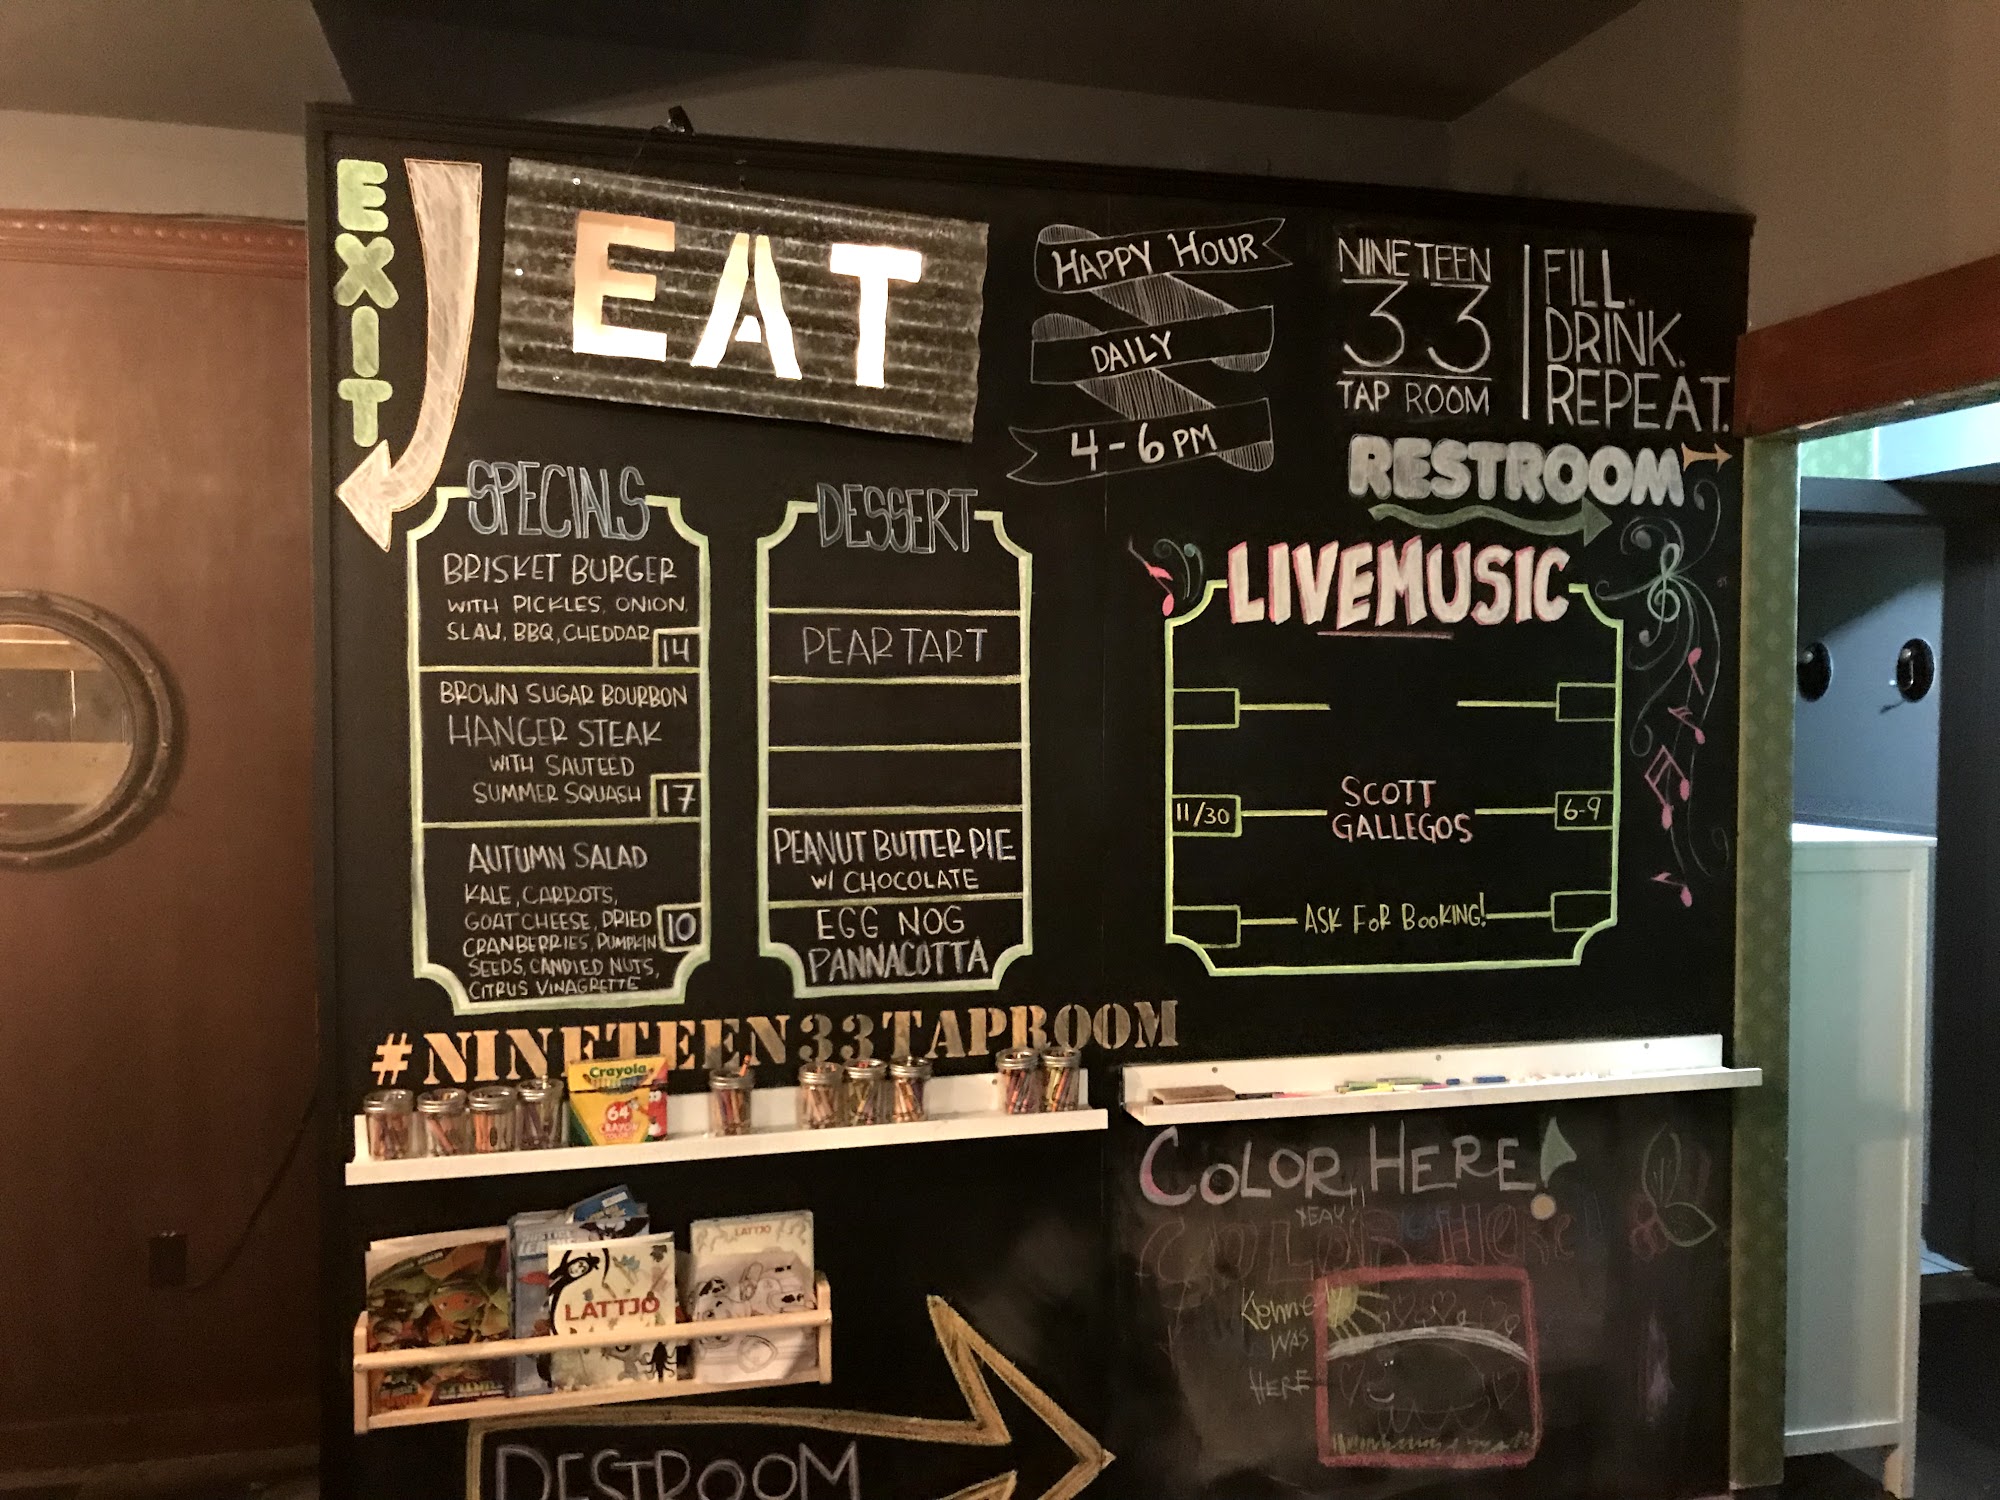 EXIT
EAT
HAPPY HOUR
DAILY
4-6 PM
NINETEEN
33
TAP ROOM
FILL.
DRINK.
REPEAT.
RESTROOM
SPECIALS
BRISKET BURGER
WITH PICKLES, ONION,
SLAW, BBQ, CHEDDAR
14
BROWN SUGAR BOURBON
HANGER STEAK
WITH SAUTEED
SUMMER SQUASH
17
AUTUMN SALAD
KALE, CARROTS,
GOAT CHEESE, DRIED
CRANBERRIES, PUMPKIN
SEEDS, CANDIED NUTS,
CITRUS VINAGRETTE
10
DESSERT
PEAR TART
PEANUT BUTTER PIE
W/ CHOCOLATE
EGG NOG
PANNACOTTA
LIVE MUSIC
11/30
SCOTT
GALLEGOS
6-9
ASK FOR BOOKING!
#NINETEEN33TAPROOM
Crayola
64
CRAYON
COLOR HERE!
YEAY!
COLOR HERE!
Kennedy
WAS
HERE
LATTJO
LATTJO
RESTROOM